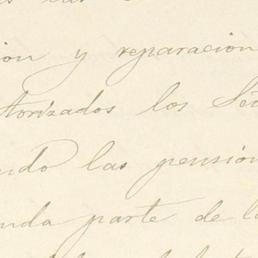 ion y reparacion
torizados los Se
ndo las pension
nda parte de la